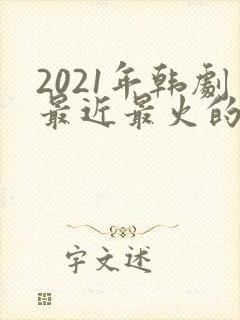 2021年韩劇
最近最火的
宇文述